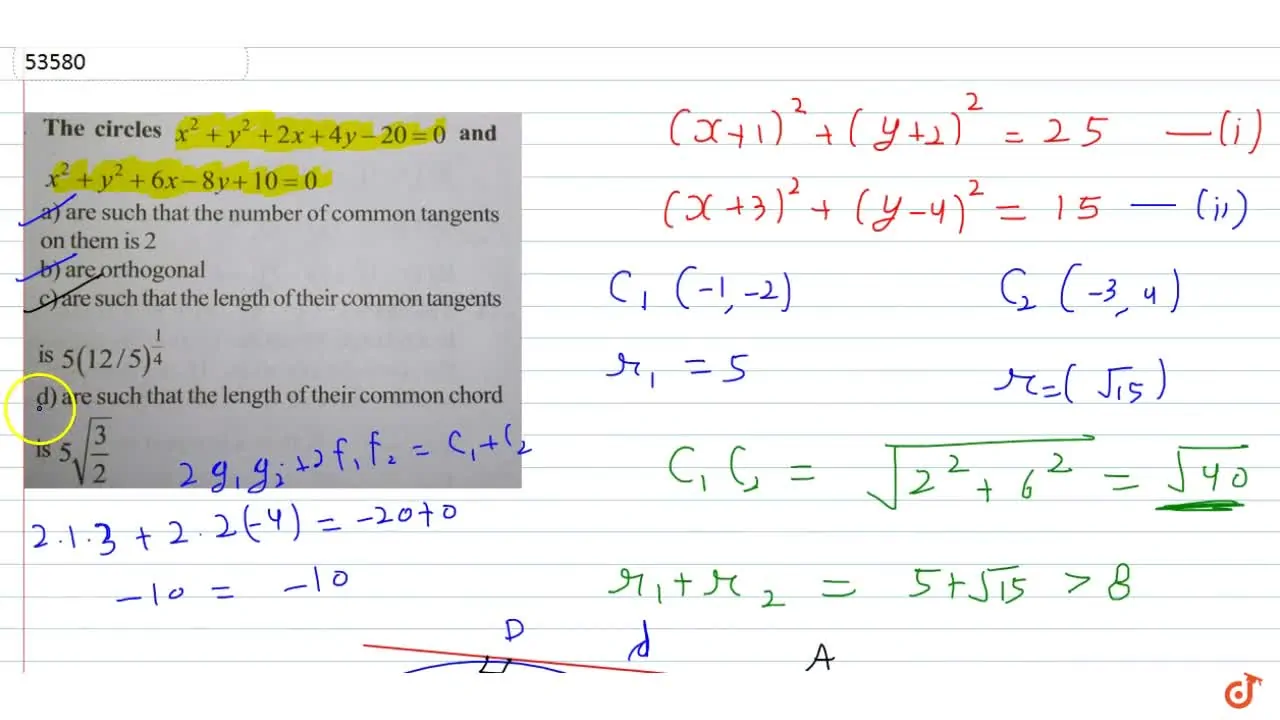 53580
The circles x² + y² + 2x + 4y − 20 = 0 and
x² + y² + 6x − 8y + 10 = 0
a) are such that the number of common tangents
on them is 2
b) are orthogonal
c) are such that the length of their common tangents
is 5(12/5)^{1/4}
d) are such that the length of their common chord
is 5√(3/2)
2 g₁ g₂ + 2 f₁ f₂ = C₁ + C₂
2 . 1 . 3 + 2 . 2 (-4) = -20+0
-10 = -10
(x+1)² + (y+2)² = 25 — (i)
(x+3)² + (y-4)² = 15 — (ii)
C₁ (-1, -2) C₂ (-3, 4)
r₁ = 5 r = (√15)
C₁ C₂ = √(2² + 6²) = √40
r₁ + r₂ = 5 + √15 > 8
D d A